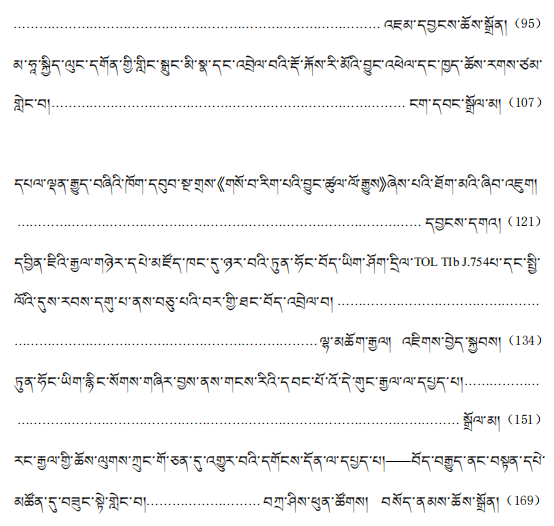 ……………………………………………………………………………… འཇམ་དབྱངས་ཆོས་སྒྲོན། (95)
མ་ཧཱ་སྐྱིད་ལུང་དགོན་གྱི་གླིང་སྒྲུང་མི་སྣ་དང་འབྲེལ་བའི་རྡོ་རྐོས་རི་མོའི་བྱུང་འཕེལ་དང་ཁྱད་ཆོས་རགས་ཙམ་
གླེང་བ།……………………………………………………………………… ངག་དབང་སྒྲོལ་མ། (107)
དཔལ་ལྡན་རྒྱུད་བཞིའི་ཁོག་དབུབ་སྔ་གྲས་《གསོ་བ་རིག་པའི་བྱུང་ཚུལ་ལོ་རྒྱུས》ཞེས་པའི་ཐོག་མའི་ཞིབ་འཇུག།
……………………………………………………………………………………… དབྱངས་དགའ། (121)
དབྱིན་ཇིའི་རྒྱལ་གཉེར་དཔེ་མཛོད་ཁང་དུ་ཉར་བའི་ཏུན་ཧོང་བོད་ཡིག་ཤོག་དྲིལ་TOL TIb J.754པ་དང་སྤྱི་
ལོའི་དུས་རབས་དགུ་པ་ནས་བཅུ་པའི་བར་གྱི་ཐང་བོད་འབྲེལ་བ། …………………………………………
……………………………………………………………… ལྷ་མཆོག་རྒྱལ། འཇིགས་བྱེད་སྐྱབས། (134)
ཏུན་ཧོང་ཡིག་རྙིང་སོགས་གཞིར་བྱས་ནས་གངས་རིའི་དབང་པོ་འོ་དེ་གུང་རྒྱལ་ལ་དཔྱད་པ།………………
……………………………………………………………………………………………… སྒྲོལ་མ། (151)
རང་རྒྱལ་གྱི་ཆོས་ལུགས་ཀྲུང་གོ་ཅན་དུ་འགྱུར་བའི་དགོངས་དོན་ལ་དཔྱད་པ།——བོད་བརྒྱུད་ནང་བསྟན་དཔེ་
མཚོན་དུ་བཟུང་སྟེ་གླེང་བ།……………………… བཀྲ་ཤིས་ཕུན་ཚོགས། བསོད་ནམས་ཆོས་སྒྲོན། (169)